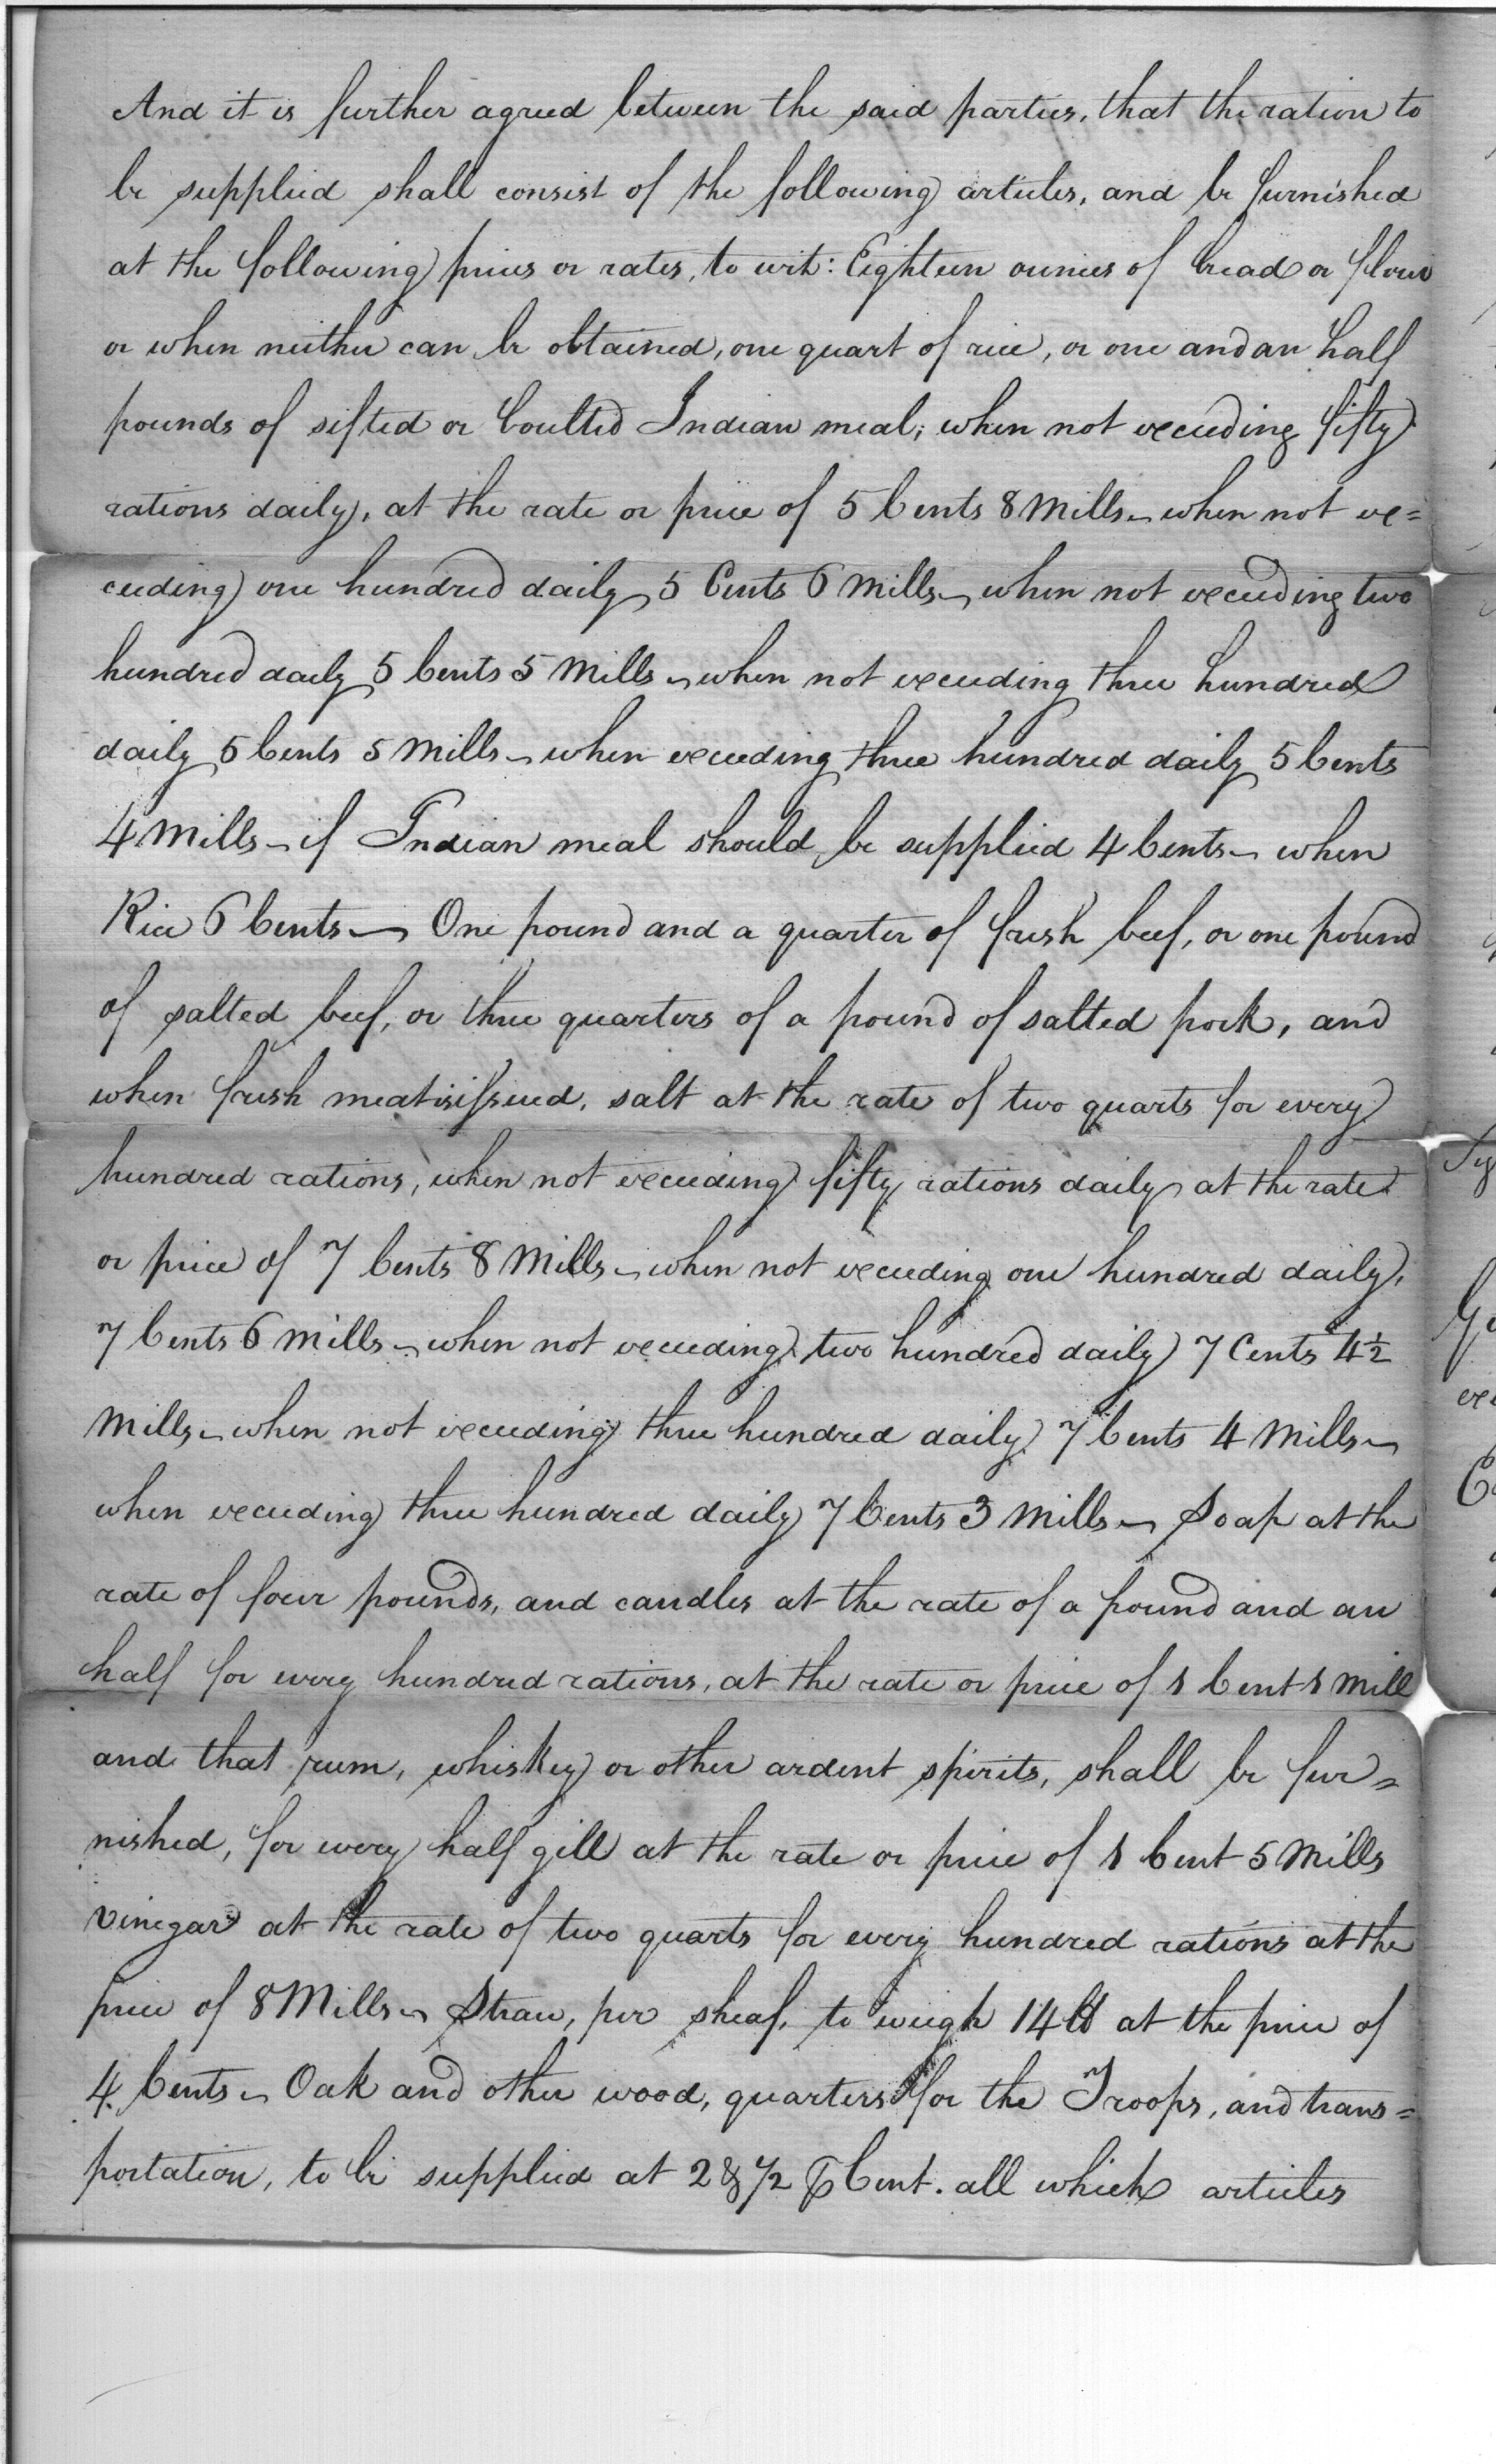 And it is further agreed between the said parties, that the ration to
be supplied shall consist of the following articles, and be furnished
at the following prices or rates, to wit: Eighteen ounces of bread or flour
or when neither can be obtained, one quart of rice, or one and an half
pounds of sifted or boulted Indian meal; when not exceeding fifty
rations daily, at the rate or price of 5 Cents 8 Mills - when not ex=
ceeding one hundred daily 5 Cents 6 Mills - when not exceeding two
hundred daily 5 Cents 5 Mills - when not exceeding three hundred
daily 5 Cents 5 Mills - when exceeding three hundred daily 5 Cents
4 Mills - if Indian meal should be supplied 4 Cents - when
Rice 6 Cents - One pound and a quarter of fresh beef, or one pound
of salted beef, or three quarters of a pound of salted pork, and
when fresh meat is issued, salt at the rate of two quarts for every
hundred rations, when not exceeding fifty rations daily at the rate
or price of 7 Cents 8 Mills - when not exceeding one hundred daily,
7 Cents 6 Mills - when not exceeding two hundred daily 7 Cents 4½
Mills - when not exceeding three hundred daily 7 Cents 4 Mills -
when exceeding three hundred daily 7 Cents 3 Mills - Soap at the
rate of four pounds, and candles at the rate of a pound and an
half for every hundred rations, at the rate or price of 1 Cent 1 Mill
and that rum, whiskey or other ardent spirits, shall be fur=
nished, for every half gill at the rate or price of 1 Cent 5 Mills
vinegar at the rate of two quarts for every hundred rations at the
price of 8 Mills - Straw, per sheaf, to weigh 14 lb at the price of
4 Cents - Oak and other wood, quarters for the Troops, and trans=
portation, to be supplied at 2 & 1/2 ⅌ Cent. all which articles